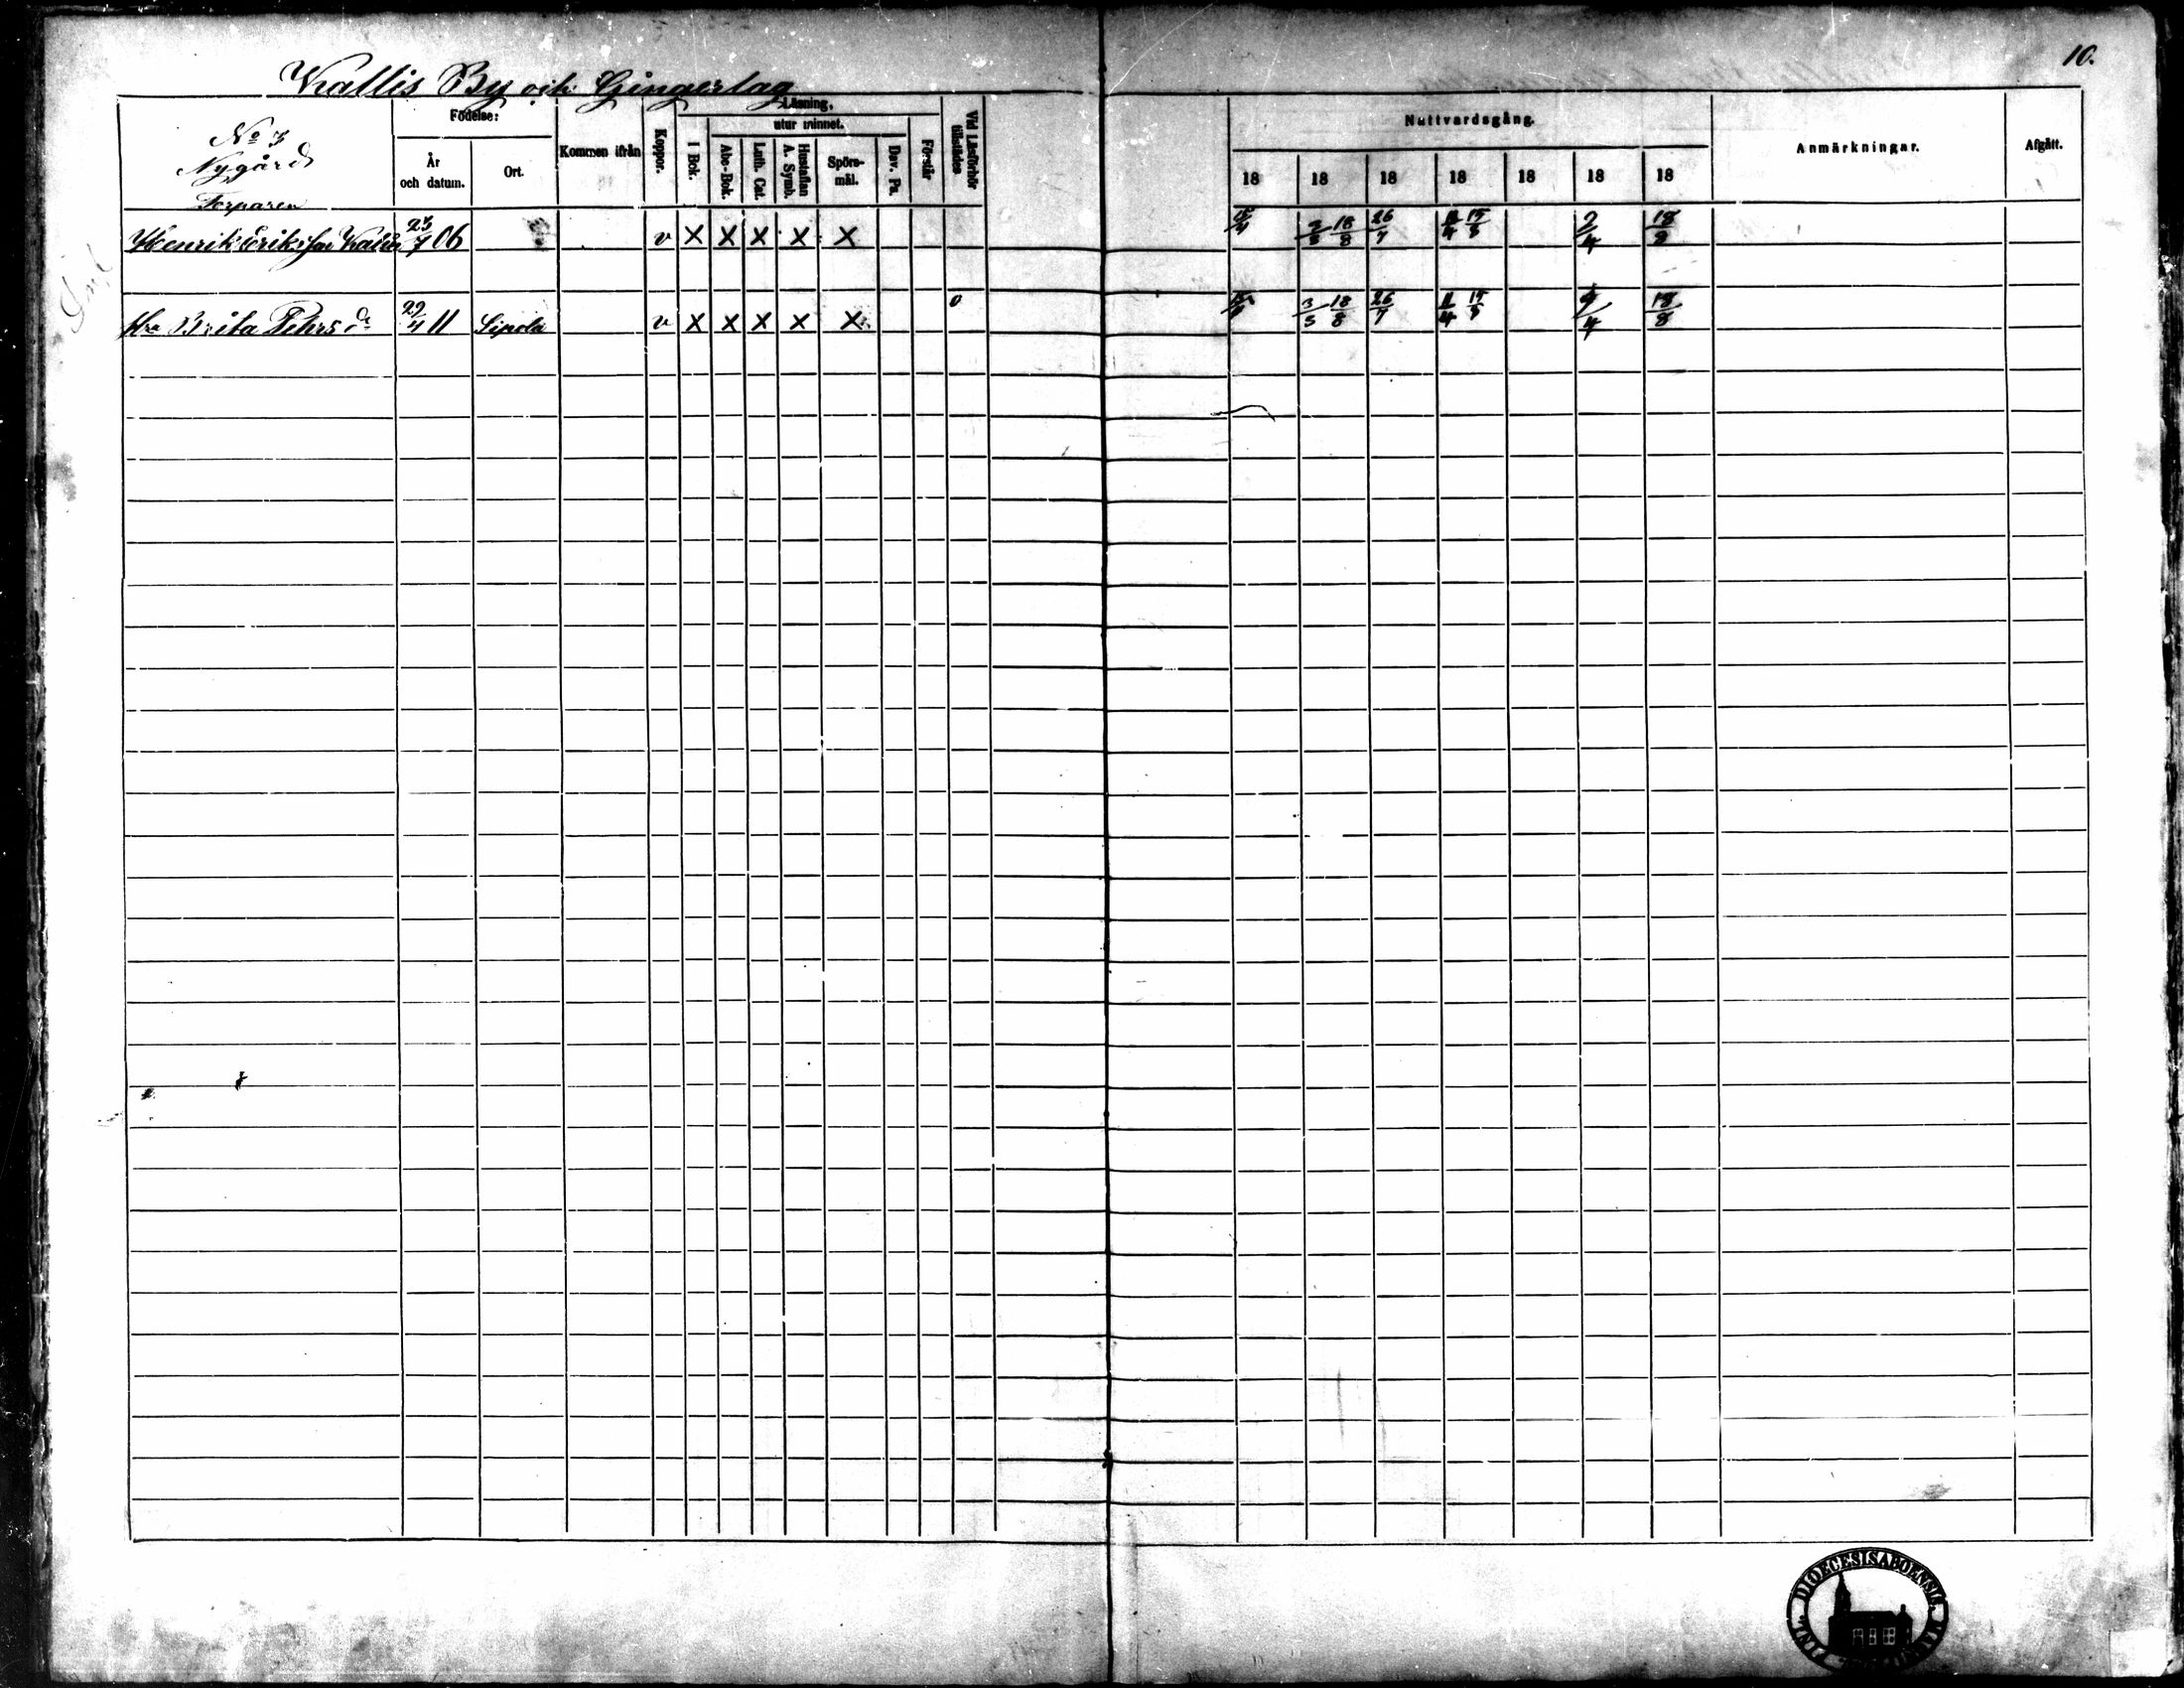 Kallis By och Gingerlag
10.
No 3
Nygård
Torparen
Födelse:
År och datum.
Ort.
Kommen ifrån
Koppor.
Läsning,
I Bok.
utur minnet.
Abc-Bok.
Luth. Cat.
Hustaflan A. Symb.
Spörs-mål.
Dav. Ps.
Förstår
Vid Läsförhör tillstädes
Nattvardsgång.
18 18 18 18 18 18 18
Anmärkningar.
Afgått.
Henrik Eriksson 06 v X X X X X 18/8 26/7 2/4 18/8
Hu Brita Pehrs dr 29/4 11 Sipola v X X X X X 0 3/5 18/8 26/7 11/4 18/8
DIOECESIS ABOENSIS